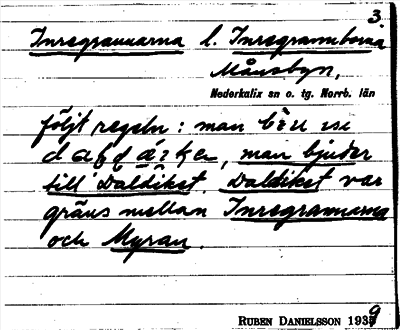 3.
Inregrannarna l. Inregrannborna
Månsbyn,
Nederkalix sn o. tg. Norrb. län
följt regeln: man
man bjuder
till Daldiket. Daldiket var
gräns mellan Inregrannarna
och Myran.
RUBEN DANIELSSON 1939